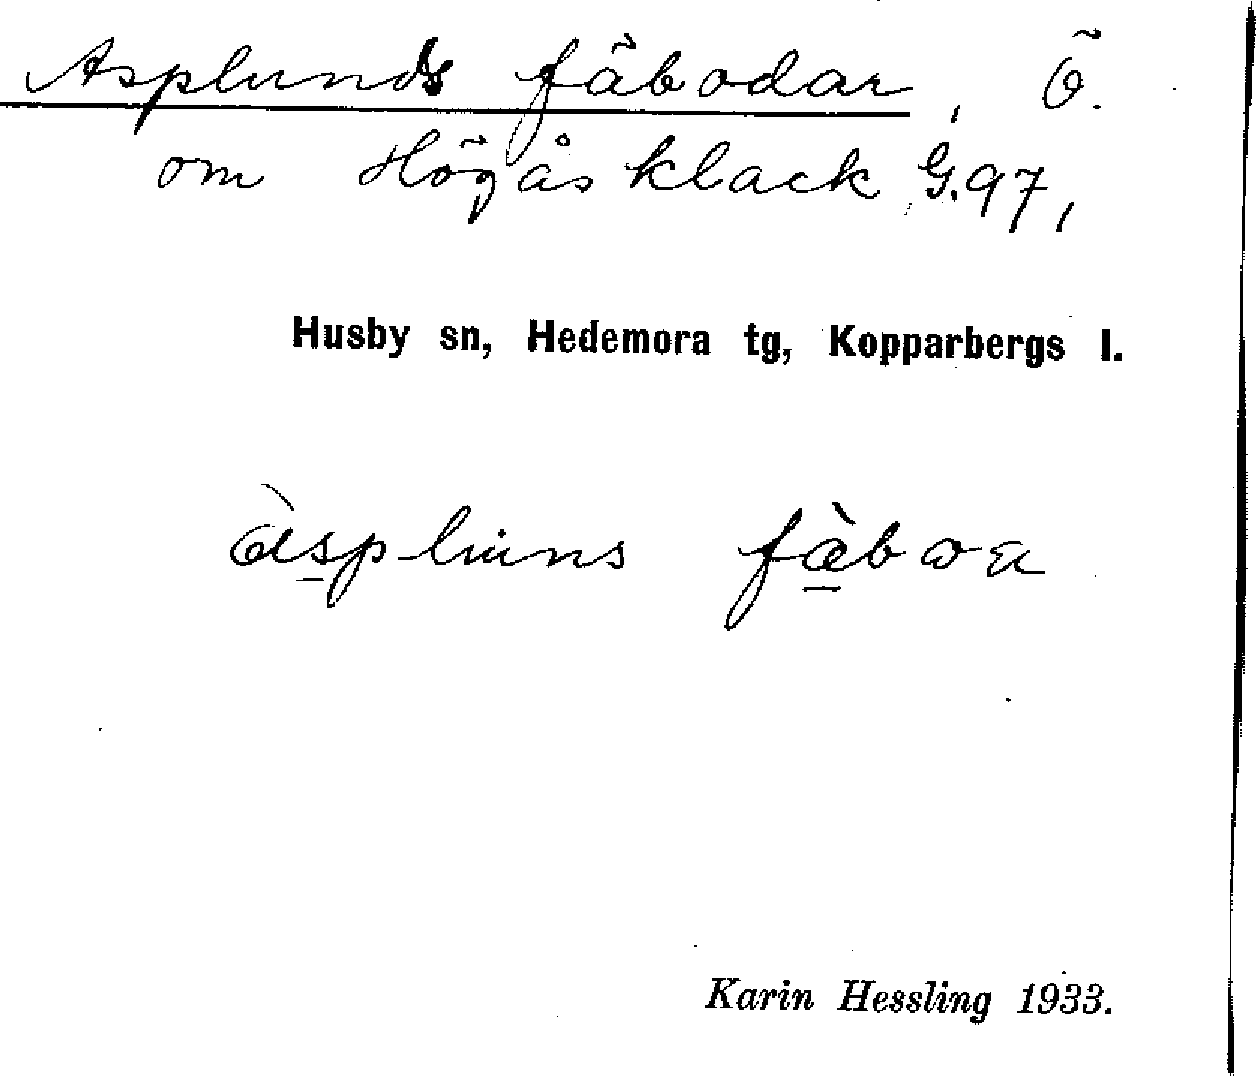 Asplunds fäbodar, Ö.
om Högåsklack, G.97,
Husby sn, Hedemora tg, Kopparbergs l.
àsplu̇ns fæ̀bωa
Karin Hessling 1933.